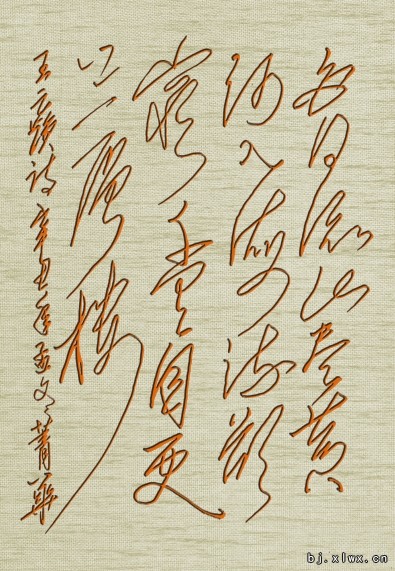 白日依山尽黄
河入海流欲
穷千里目更
上一层楼
王之涣诗辛丑年孟冬菁华
bj.xlwx.cn